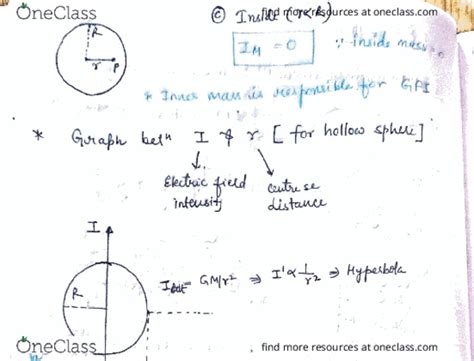 OneClass
find more resources at oneclass.com
© Inside (r<R)
R
r P
I_M = 0
∵ inside mass = 0
* Inner mass is responsible for GFI
* Graph betn I & r [for hollow sphere]
↓
Electric field intensity
centre se distance
I
R
I_out = GM/r² ⇒ I' ∝ 1/r² ⇒ Hyperbola
OneClass
find more resources at oneclass.com